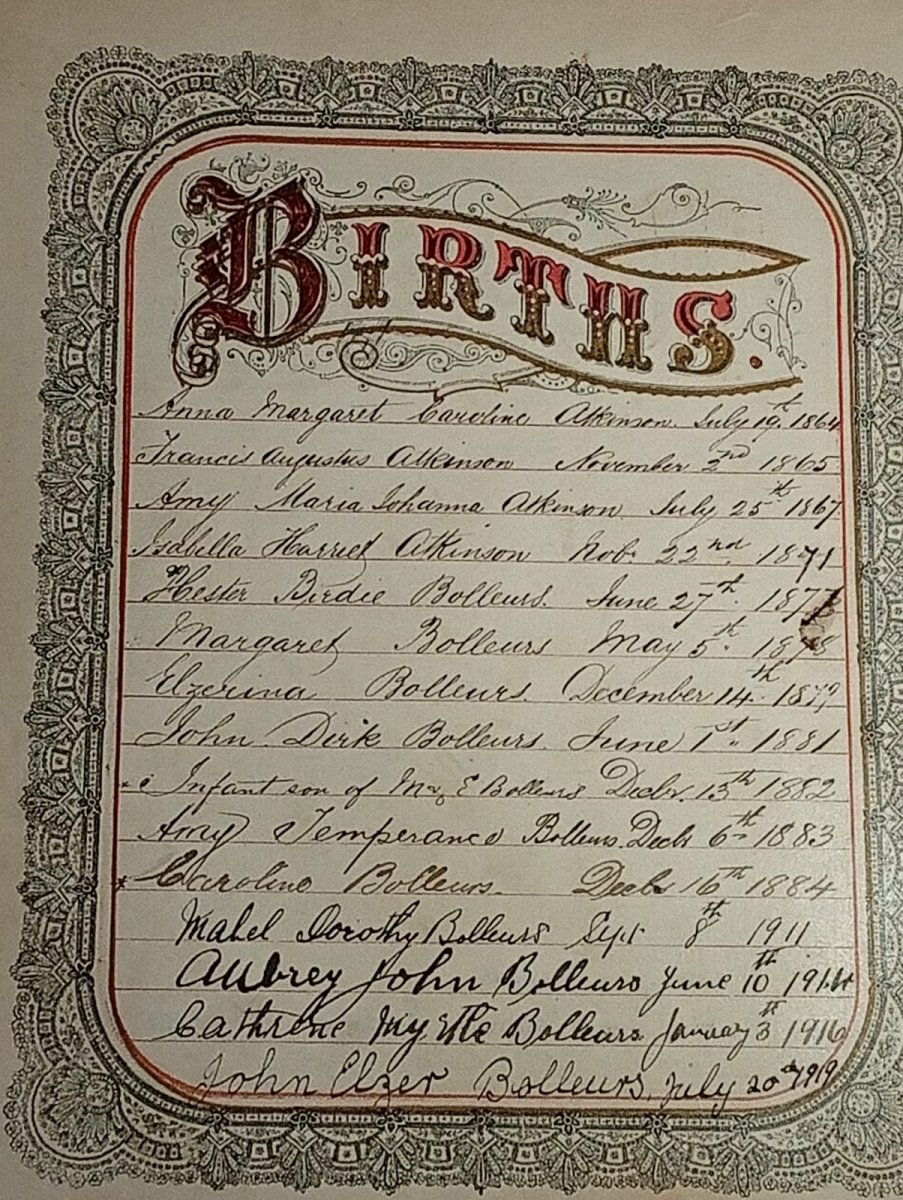 BIRTHS.
Anna Margaret Caroline Atkinson. July 19th. 1864
Francis Augustus Atkinson November 2nd 1865
Amy Maria Johanna Atkinson. July 25th 1867
Isabella Harriet Atkinson Nob. 22nd. 1871
Hester Birdie Bolleurs. June 27th. 1877
Margaret Bolleurs May 5th. 1878
Elzerina Bolleurs. December 14th. 1879
John Dirk Bolleurs. June 1st. 1881
Infant son of E Bolleurs Decbr. 13th 1882
Amy Temperance Bolleurs. Decbr 6th 1883
Caroline Bolleurs. Decbr 16th 1884
Mabel Dorothy Bolleurs Sept 8th 1911
Aubrey John Bolleurs June 10th 1914
Cathrene Myrtle Bolleurs. January 3th 1916
John Elzer Bolleurs, July 20th 1919